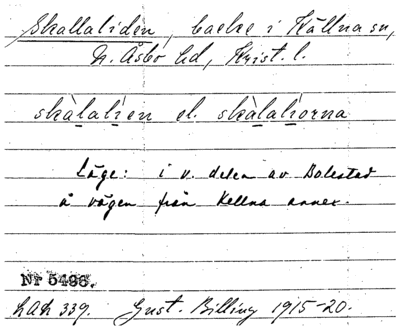 Skallaliden, backe i Källna sn,
N. Åsbo hd, Krist. l.
skàlalíen el. skàlalíorna
Läge: i v. delen av Bolestad
å vägen från Kellna annex.
Nr 5496.
LAL 339. Gust. Billing 1915-20.